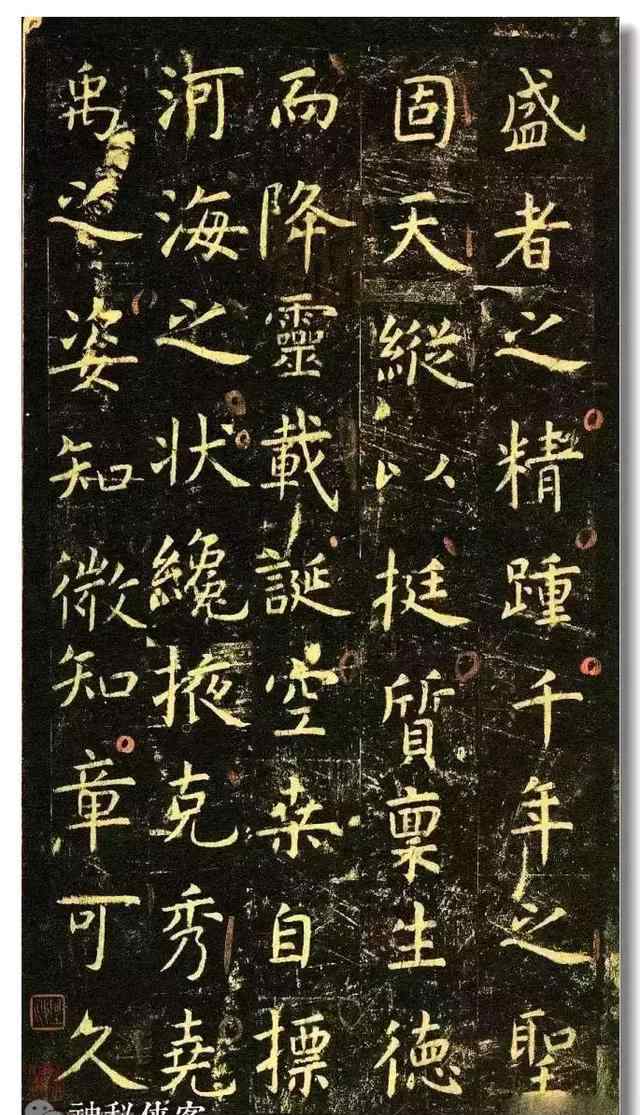 盛者之精踵千年之聖
固天縱以挺質稟生德
而降靈載誕空桒自摽
河海之状纔掖克秀堯
禹之姿知微知章可久
神秘侠客